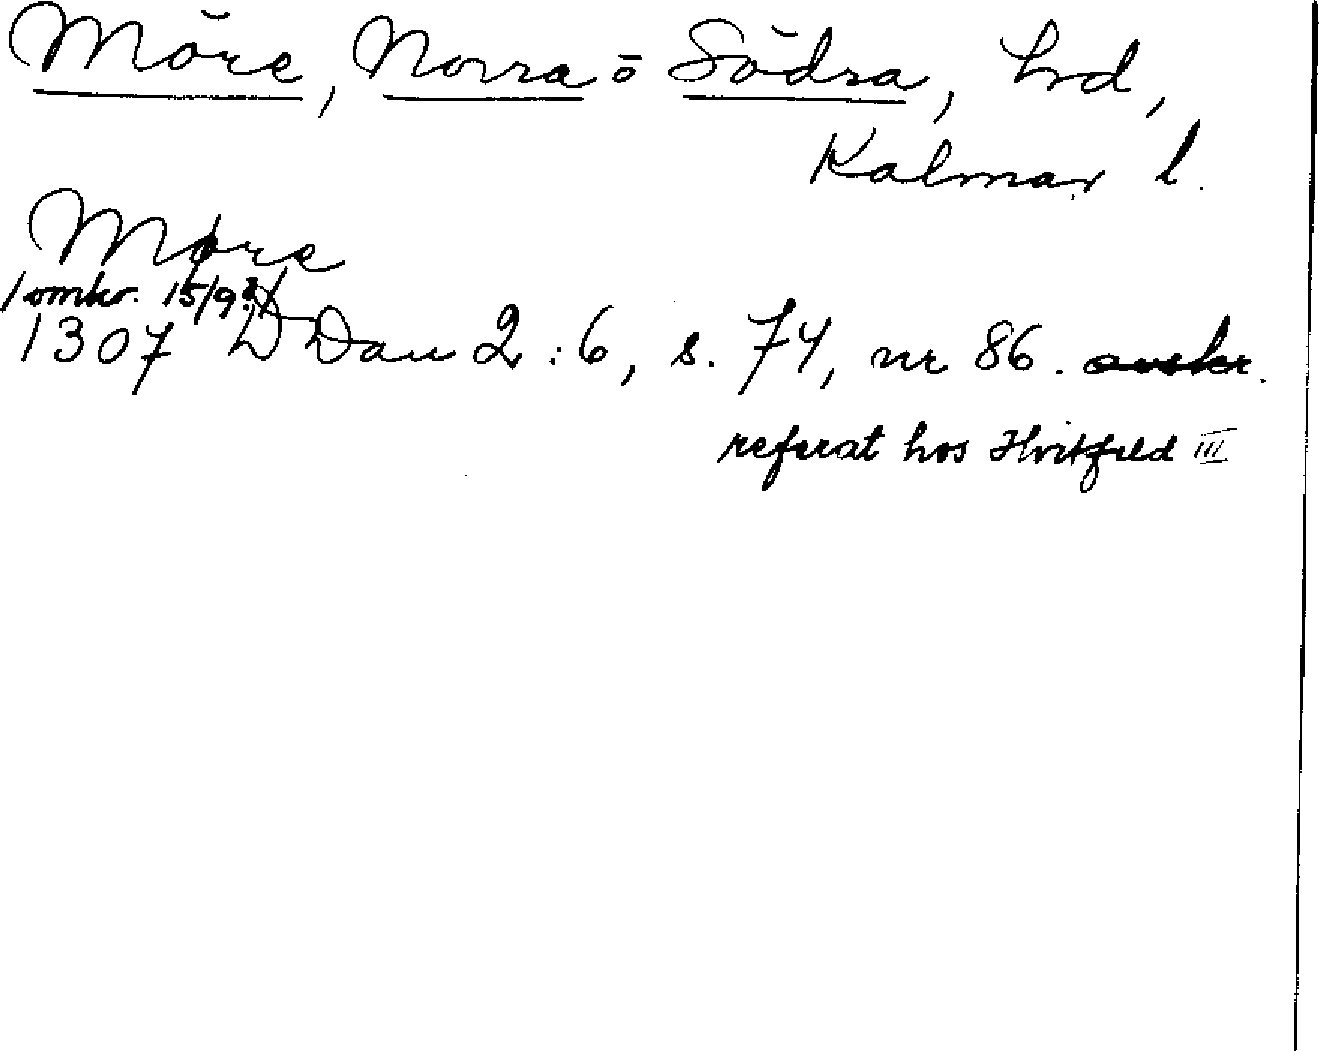 Möre, Norra o Södra, hrd,
Kalmar l.
Møre
/omkr. 15/9?/
1307 DDan 2:6, s. 74, nr 86. avskr.
referat hos Hvitfeld III